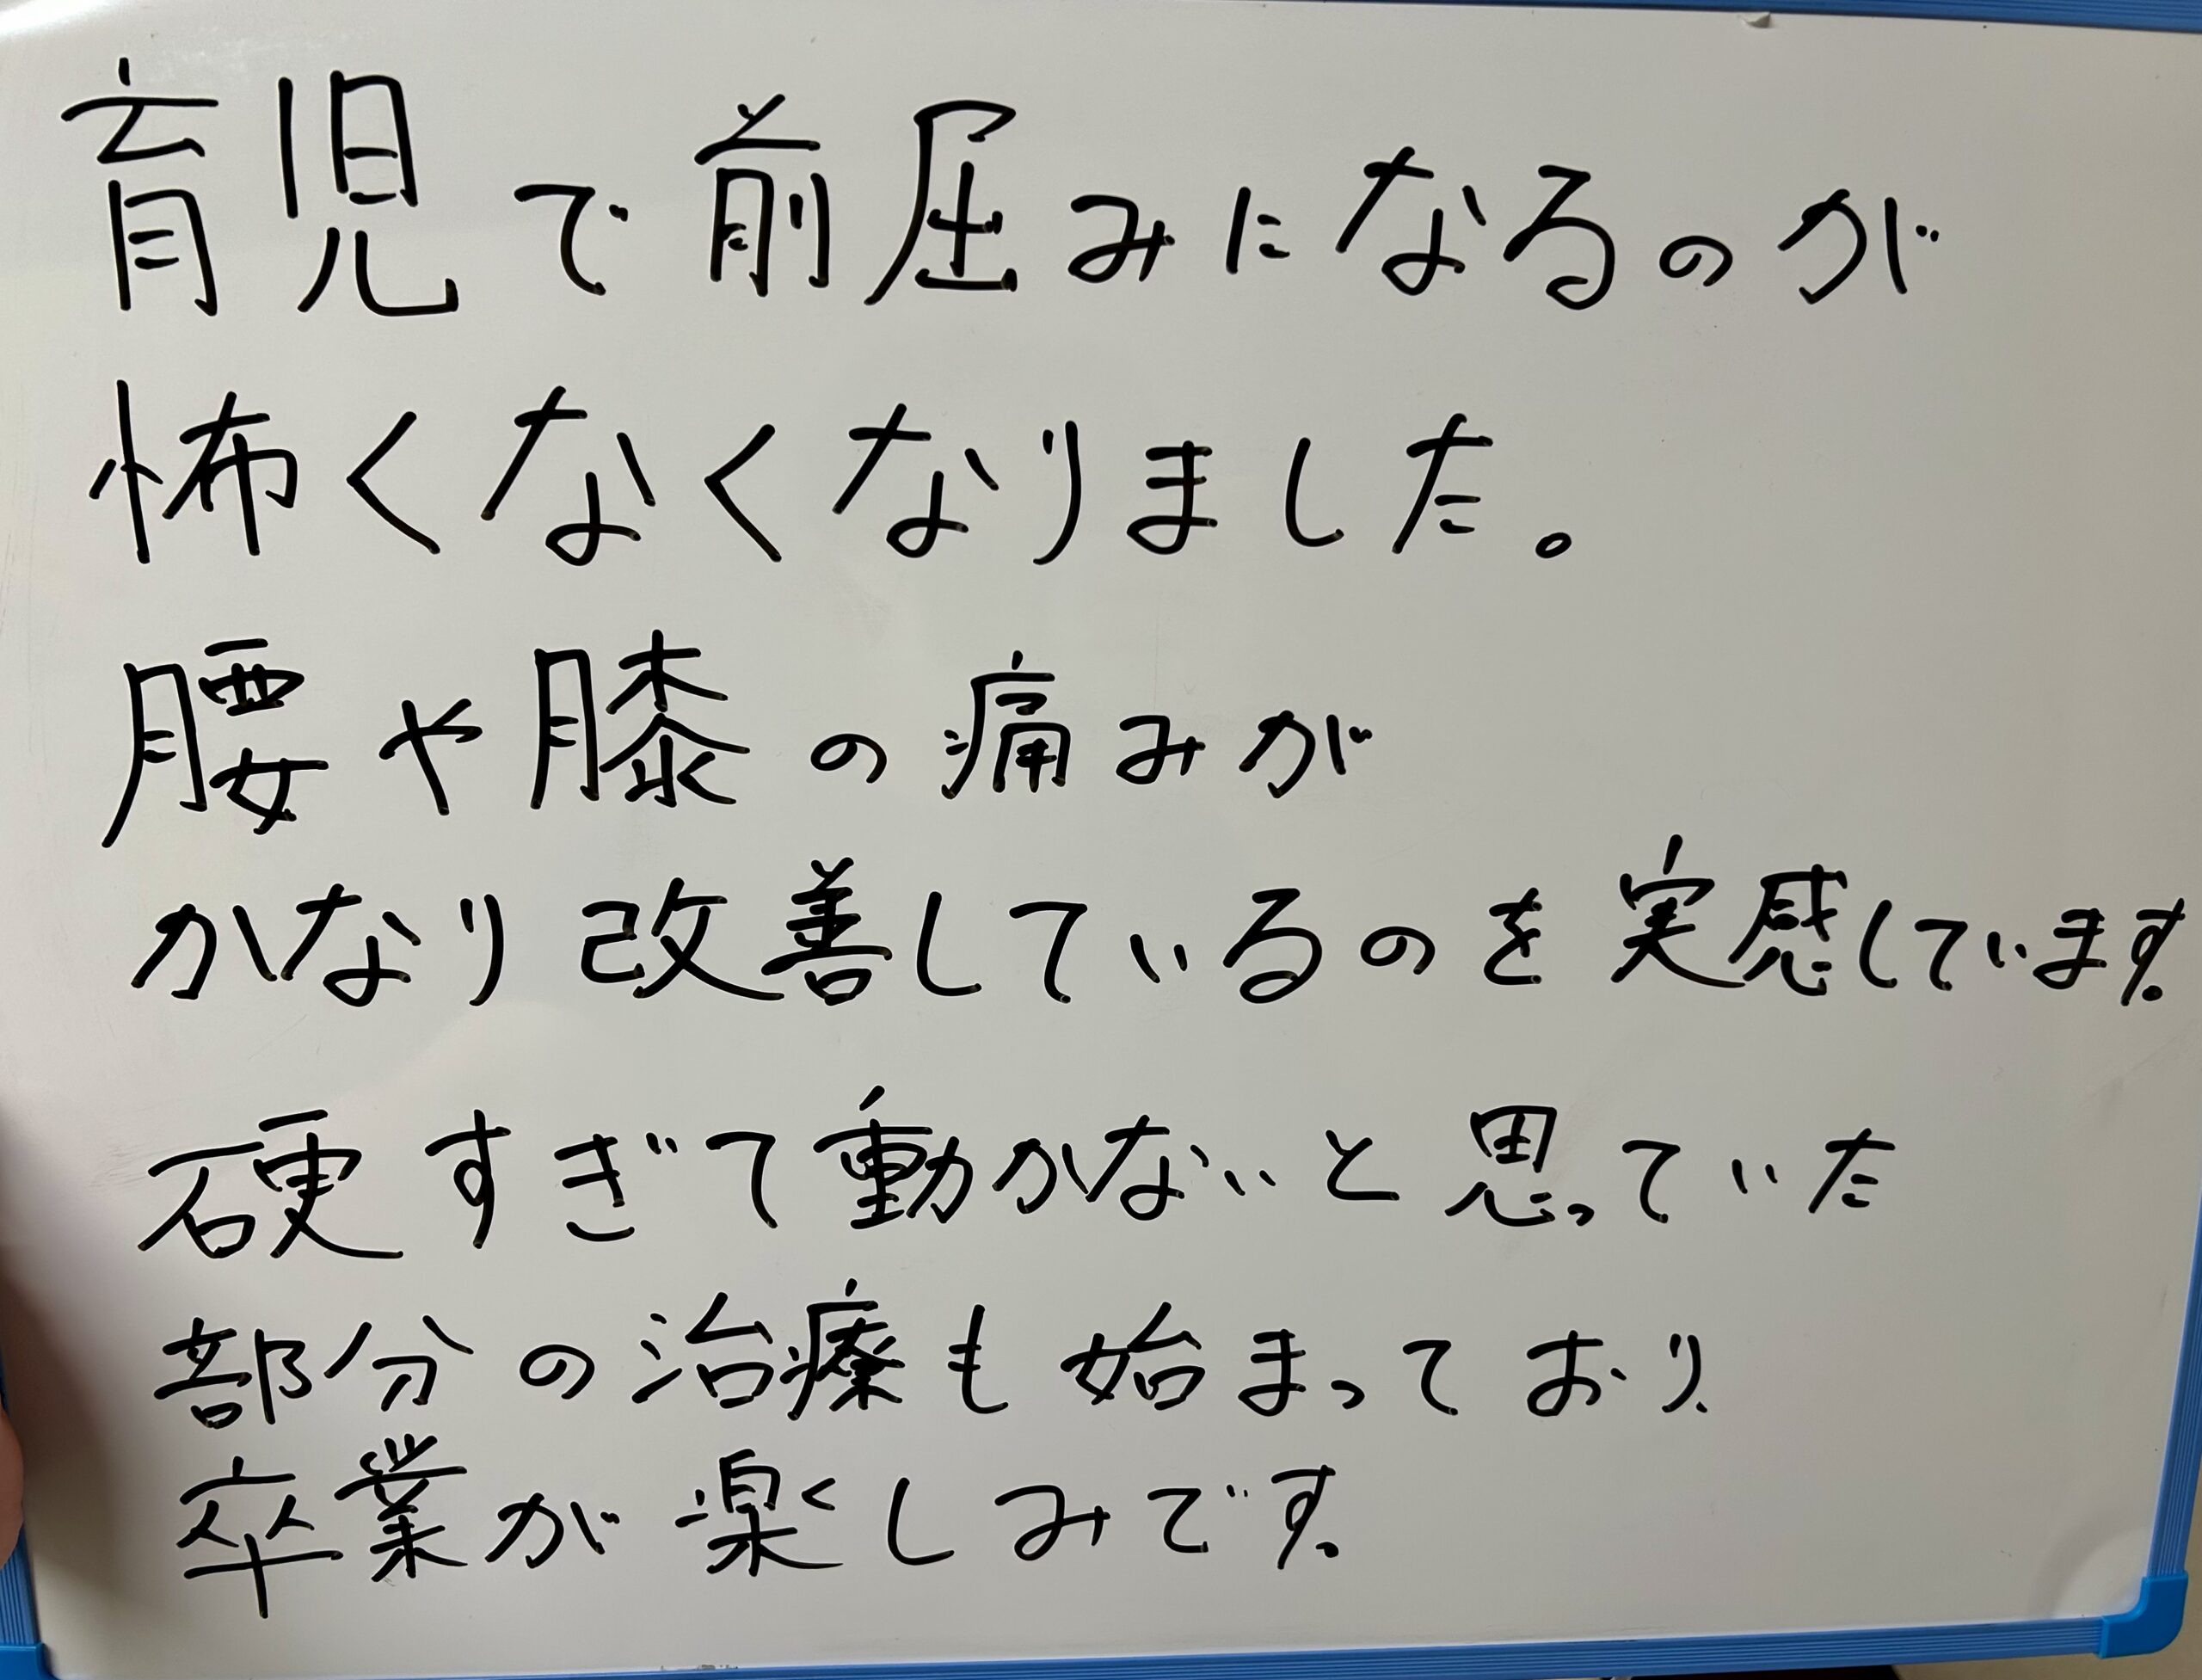 育児で前屈みになるのが
怖くなくなりました。
腰や膝の痛みが
かなり改善しているのを実感しています。
硬すぎて動かないと思っていた
部分の治療も始まっており、
卒業が楽しみです。